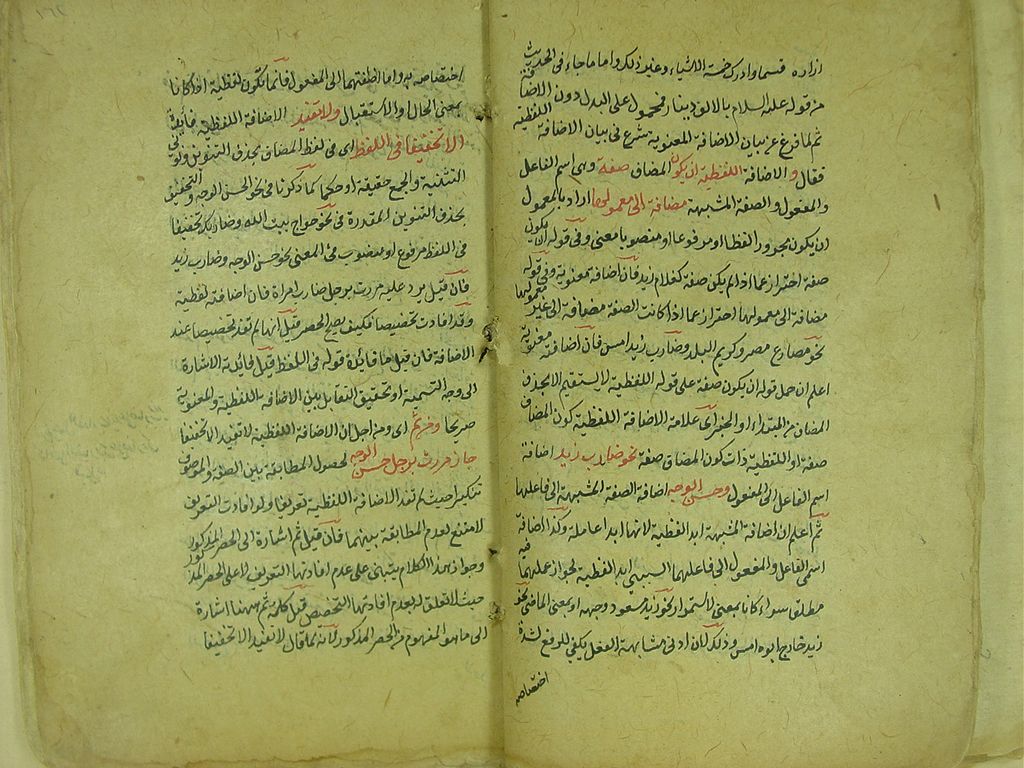 ازاره قسما وادرك خمسة الاشياء وغير ذلك واما ما جاء في الحديث
من قوله عليه السلام بالالف دينار فمحمول على البدل دون الاضافة
ثم لما فرغ عن بيان الاضافة المعنوية شرع في بيان الاضافة اللفظية
فقال والاضافة اللفظية ان يكون المضاف صفة وهي اسم الفاعل
والمفعول والصفة المشبهة مضافة الى معمولها اراد بالمعمول
ان يكون مجرورا لفظا او مرفوعا او منصوبا معنى وفي قوله ان يكون
صفة احتراز عما اذا لم يكن صفة كغلام زيد فان اضافته معنوية وفي قوله
مضافة الى معمولها احتراز عما اذا كانت الصفة مضافة الى غير معمولها
نحو مصارع مصر وكريم البلد وضارب زيد امس فان اضافته معنوية
اعلم ان حمل قوله ان يكون صفة على قوله اللفظية لا يستقيم الا بحذف
المضاف من المبتدا او الخبر اى علامة الاضافة اللفظية كون المضاف
صفة او اللفظية ذات كون المضاف صفة نحو ضارب زيد اضافة
اسم الفاعل الى المفعول وحسن الوجه اضافة الصفة المشبهة الى فاعلها
ثم اعلم ان اضافة المشبهة ابدا لفظية لانها ابدا عاملة وكذا اضافة
اسمى الفاعل والمفعول الى فاعلهما السببى ابدا لفظية لجواز عملهما فيه
مطلقا سواء كانا بمعنى الاستمرار نحو زيد مسعود وجهه او بمعنى الماضى نحو
زيد خارج ابوه امس وذلك لان ادنى مشابهة الفعل يكفي للرفع لشدة
اختصاصه
اختصاصه به واما اضافتهما الى المفعول فانما تكون لفظية اذا كانا
بمعنى الحال او الاستقبال ولا تفيد الاضافة اللفظية فائدة
الا تخفيفا في اللفظ اى في لفظ المضاف بحذف التنوين ونونى
التثنية والجمع حقيقة او حكما كما ذكرنا في نحو الحسن الوجه والتخفيف
بحذف التنوين المقدرة في نحو حواج بيت الله وضاربك تخفيفا
في اللفظ مرفوع او منصوب في المعنى نحو حسن الوجه وضارب زيد
فان قيل يرد عليه مررت برجل ضارب امراة فان اضافته لفظية
وقد افادت تخصيصا فكيف يصح الحصر قيل انها لم تفد تخصيصا عند
الاضافة فان قيل ما فائدة قوله في اللفظ قيل فائدته الاشارة
الى وجه التسمية او تحقيق التقابل بين الاضافة اللفظية والمعنوية
صريحا ومن ثم اى ومن اجل ان الاضافة اللفظية لا تفيد الا تخفيفا
جاز مررت برجل حسن الوجه لحصول المطابقة بين الصفة والموصوف
تنكيرا حيث لم تفد الاضافة اللفظية تعريفا ولو افادت التعريف
لامتنع لعدم المطابقة بينهما فان قيل ثم اشارة الى الحصر المذكور
وجواز هذا الكلام يبتنى على عدم افادتها التعريف لا على الحصر المذكور
حيث لا تعلق له بعدم افادتها التخصيص قيل كلمة ثم ههنا اشارة
الى ما هو المفهوم من الحصر المذكور لانه لما قال لا تفيد الا تخفيفا